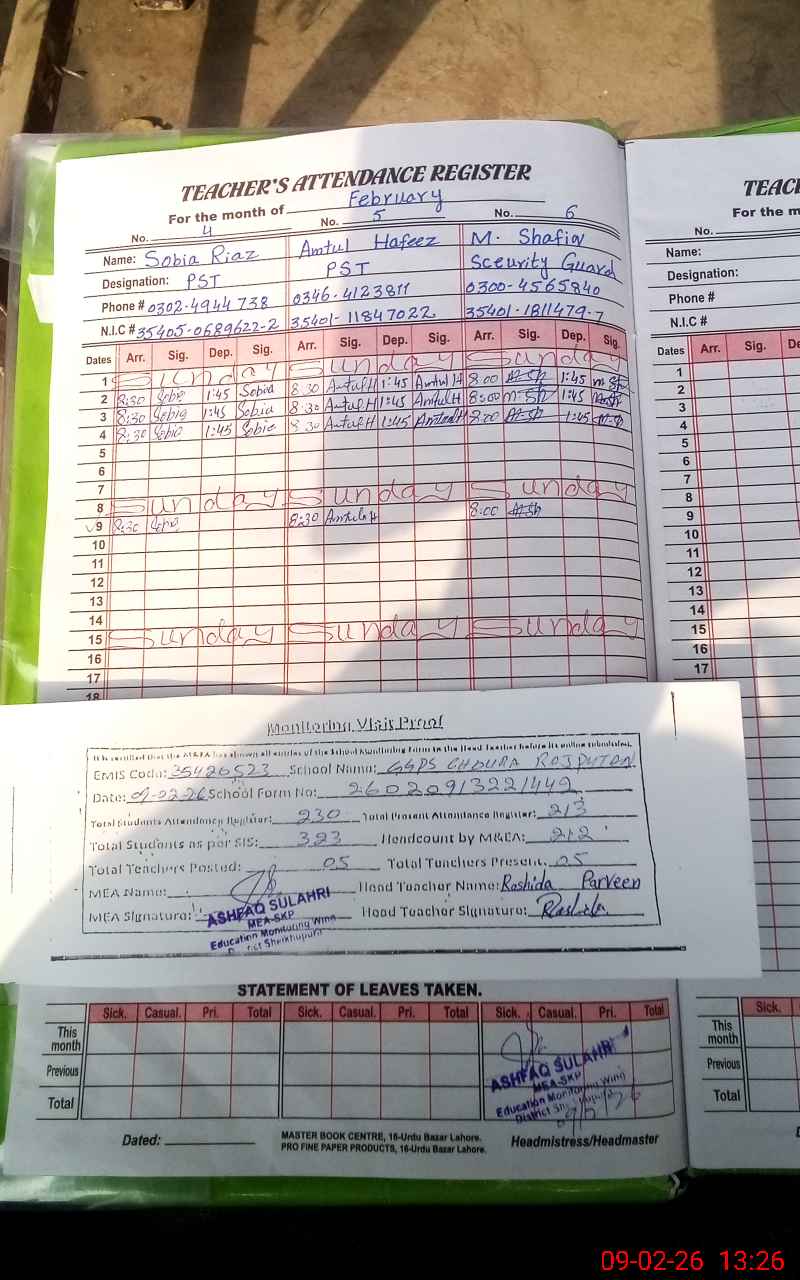 TEACHER'S ATTENDANCE REGISTER
For the month of February
No. 4 No. 5 No. 6
Name: Sobia Riaz Amtul Hafeez M. Shafiq
Designation: PST PST Sceurity Guard
Phone # 0302-4944738 0346-4123811 0300-4565840
N.I.C # 35405-0689622-2 35401-11847022 35401-1811479-7
Dates Arr. Sig. Dep. Sig. Arr. Sig. Dep. Sig. Arr. Sig. Dep. Sig.
1 Sunday Sunday Sunday
2 8:30 Sobia 1:45 Sobia 8:30 Amtul H 1:45 Amtul H 8:00 1:45 m-Sh
3 8:30 Sobia 1:45 Sobia 8:30 Amtul H 1:45 Amtul H 8:00 m-Sh 1:45
4 8:30 Sobia 1:45 Sobia 8:30 Amtul H 1:45 Amtul H 8:00 1:45 m-Sh
5
6
7
8 Sunday Sunday Sunday
9 8:30 Sobia 8:30 Amtul H 8:00
10
11
12
13
14
15 Sunday Sunday Sunday
16
17
18
TEAC
For the m
No.
Name:
Designation:
Phone #
N.I.C #
Dates Arr. Sig. De
1
2
3
4
5
6
7
8
9
10
11
12
13
14
15
16
17
Monitoring Visit Proof
It is certified that the MEA has shown all entries of the School Monitoring Form to the Head Teacher before its online submission.
EMIS Code: 35420523 School Name: GGPS CHOURA RAJPUTAN
Date: 09-02-26 School Form No: 26020913221449
Total Students Attendance Register: 230 Total Present Attendance Register: 213
Total Students as per SIS: 323 Headcount by M&EA: 212
Total Teachers Posted: 05 Total Teachers Present. 05
MEA Name: Head Teacher Name: Rashida Parveen
MEA Signature: Head Teacher Signature: Rashida
ASHFAQ SULAHRI
MEA-SKP
Education Monitoring Wing
District Sheikhupura
STATEMENT OF LEAVES TAKEN.
Sick. Casual. Pri. Total Sick. Casual. Pri. Total Sick. Casual. Pri. Total
This month
Previous
Total
ASHFAQ SULAHRI
MEA-SKP
Education Monitoring Wing
District Sheikhupura
Dated: MASTER BOOK CENTRE, 16-Urdu Bazar Lahore. Headmistress/Headmaster
PRO FINE PAPER PRODUCTS, 16-Urdu Bazar Lahore.
Sick.
This month
Previous
Total
09-02-26 13:26